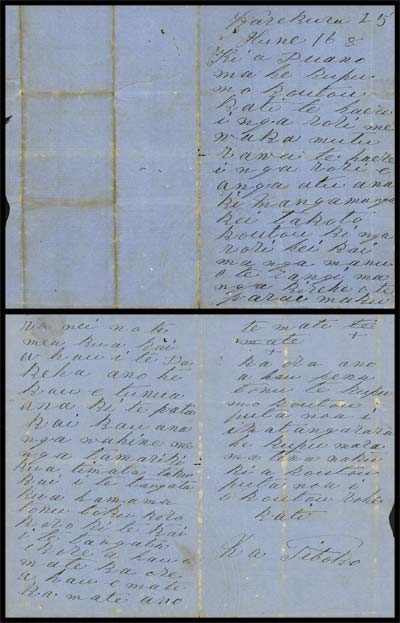 Warekura 25
Hune 16 8
Ki a Puano
ma he kupu
mo koutou
kati te haere
i nga rori me
waka mutu
rawa te haere
i nga rori e
anga atu ana
ki mangamanga
kei takoto
koutou ki nga
rori hei kai
ma nga manu
o te rangi ma
nga kirehe o te
parae maku
ra nei no te
mea kua kai
a hau i te Pa
keha ano he
kau e tunua
ana ki te pata
kai kau ana
nga wahine me
nga tamariki
kua timata taku
kai i te tangata
kua hamama
tonu toku koro
koro ki te kai
i te tangata
ekore a hau e
mate ka ore
a hau e mate
ka mate ano
te mate te
mate
ka ora ano
a hau pena
tonu te kupu
mo koutou
puta noa i
Matangarara
he kupu mara
ma tena naku
ki a koutou
puta noa i
o koutou rohe
kati
Na Titoko